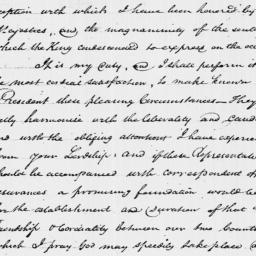 ception with which I have been honored by
Majesties, and the magnanimity of the senti
which the King condescended to express on the occ
It is my Duty, and I shall perform it
the most cordial satisfaction, to make known
President these pleasing Circumstances — They
ly harmonize with the liberality and Cand
and with the obliging attentions I have experien
from your Lordship: and if these Representatio
should be accompanied with correspondent A
ssurances a promising foundation would be
for the establishment and duration of that
Friendship & Cordiality between our two Count
which I pray God may speedily take place and